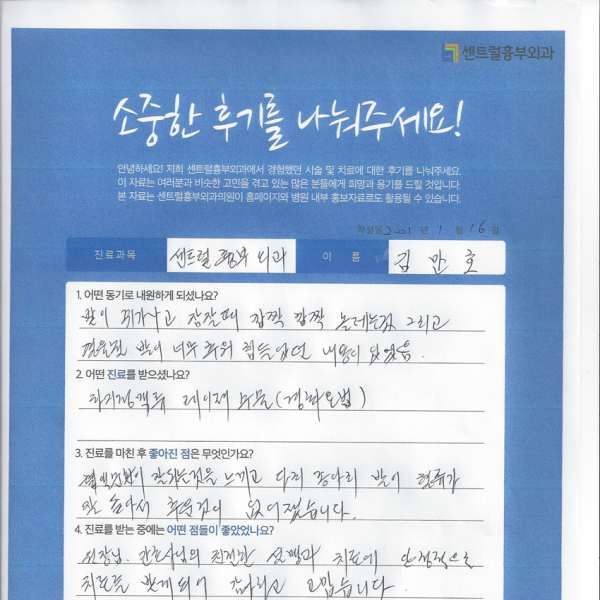 센트럴흉부외과
소중한 후기를 나눠주세요!
안녕하세요! 저희 센트럴흉부외과에서 경험했던 시술 및 치료에 대한 후기를 나눠주세요.
이 자료는 여러분과 비슷한 고민을 겪고 있는 많은 분들에게 희망과 용기를 드릴 것입니다.
본 자료는 센트럴흉부외과의원이 홈페이지와 병원 내부 홍보자료로도 활용될 수 있습니다.
작성일 2021년 1월 16일
진료과목 센트럴 흉부외과 이 름 김만호
1. 어떤 동기로 내원하게 되셨나요?
쥐가나고 잠잘때 깜짝 깜짝 놀래는것 그리고
발이 너무 추워 힘들었던 내용이 있었음.
2. 어떤 진료를 받으셨나요?
하지정맥류 레이져 (경화요법)
3. 진료를 마친 후 좋아진 점은 무엇인가요?
잘되는것을 느끼고 다리 종아리 발이
추운것이 없어졌습니다.
4. 진료를 받는 중에는 어떤 점들이 좋았었나요?
원장님. 간호사님의 친절한 설명과 치료에 안정적으로
치료를 받게되어 감사하고 고맙습니다.